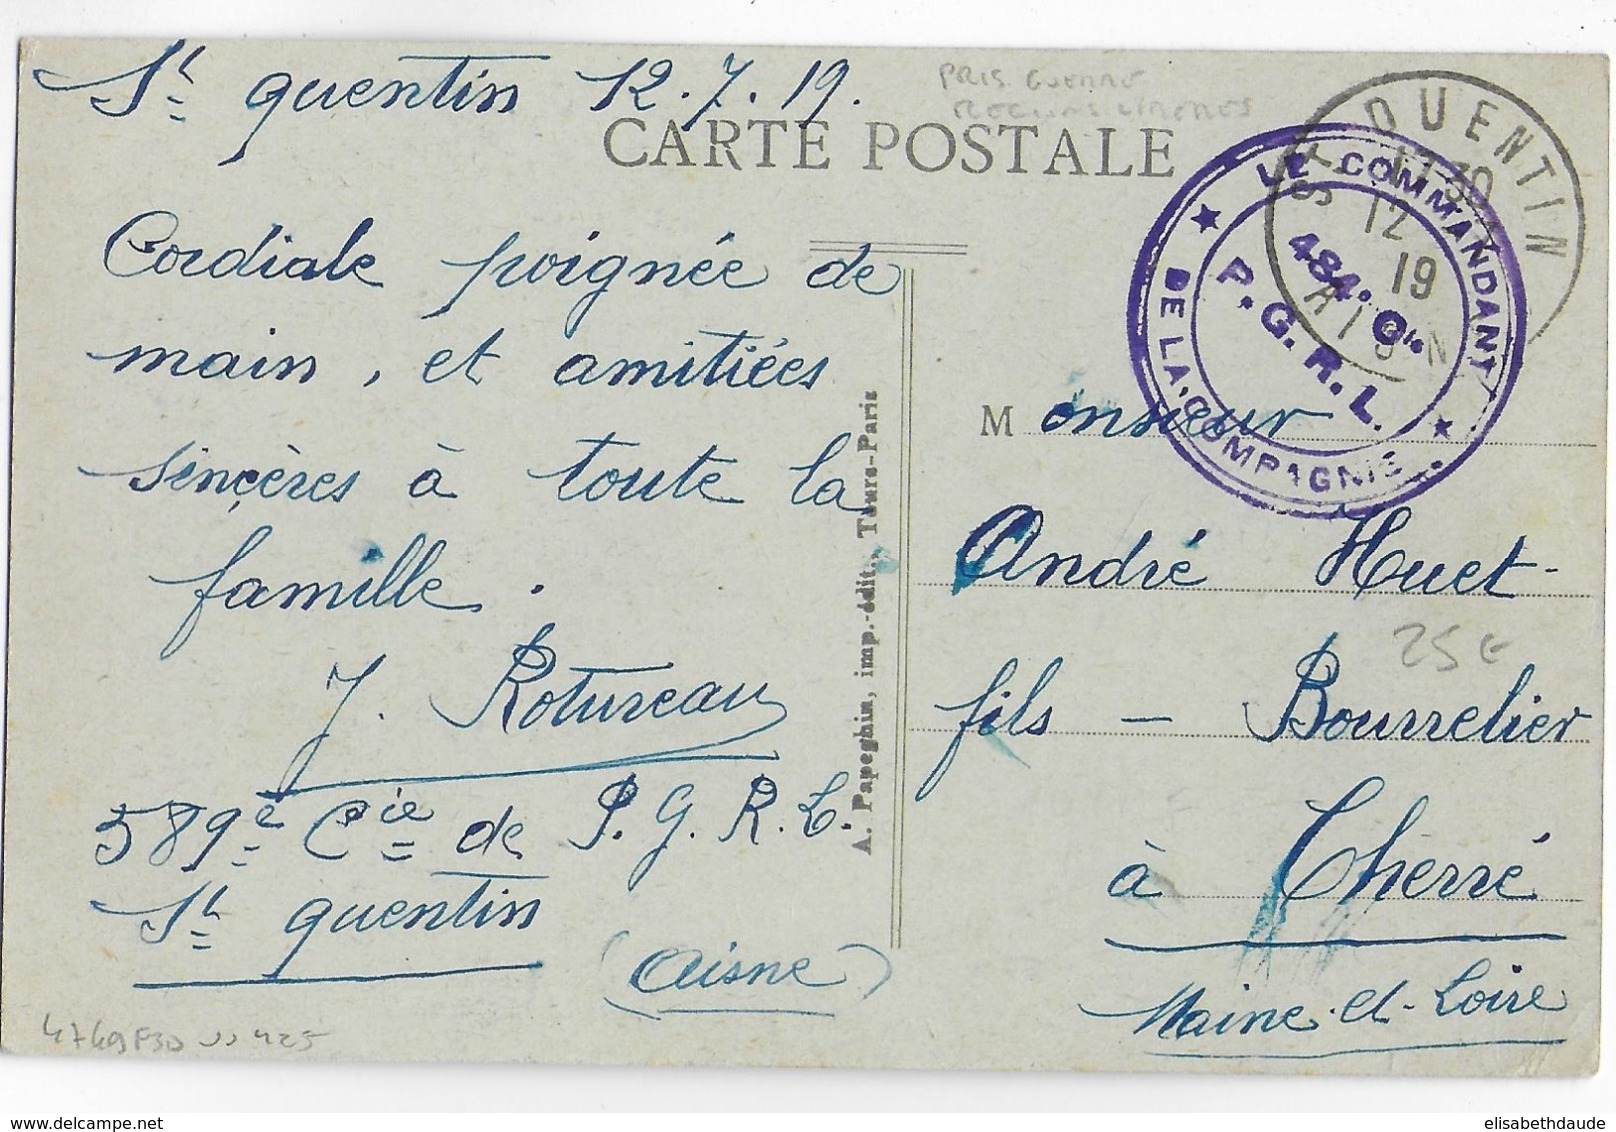 St quentin 12.7.19.
PRIS. GUERRE
REGIONS LIBEREES
CARTE POSTALE
Cordiale poignée de
main, et amitiées
sincères à toute la
famille.
J. Rotureau
589e Cie de P.G.R.L.
St quentin
(Aisne)
A. Papeghin, imp.-édit., Tours-Paris
ST QUENTIN
17 30
12
19
AISNE
LE COMMANDANT
484. Cie
P.G.R.L.
DE LA COMPAGNIE
Monsieur
André Huet
fils - Bourrelier
25 €
à Cherré
Maine-et-Loire
elisabethdaude